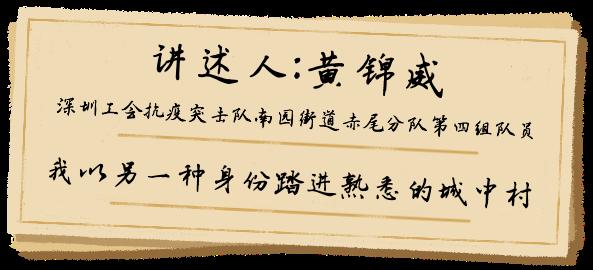 讲述人:黄锦威
深圳工会抗疫突击队南园街道赤尾分队第四组队员
我以另一种身份踏进熟悉的城中村